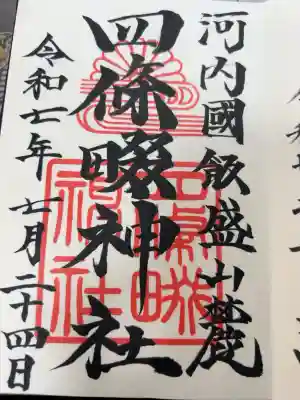 河内國飯盛山麓
四條畷神社
令和七年 七月二十四日